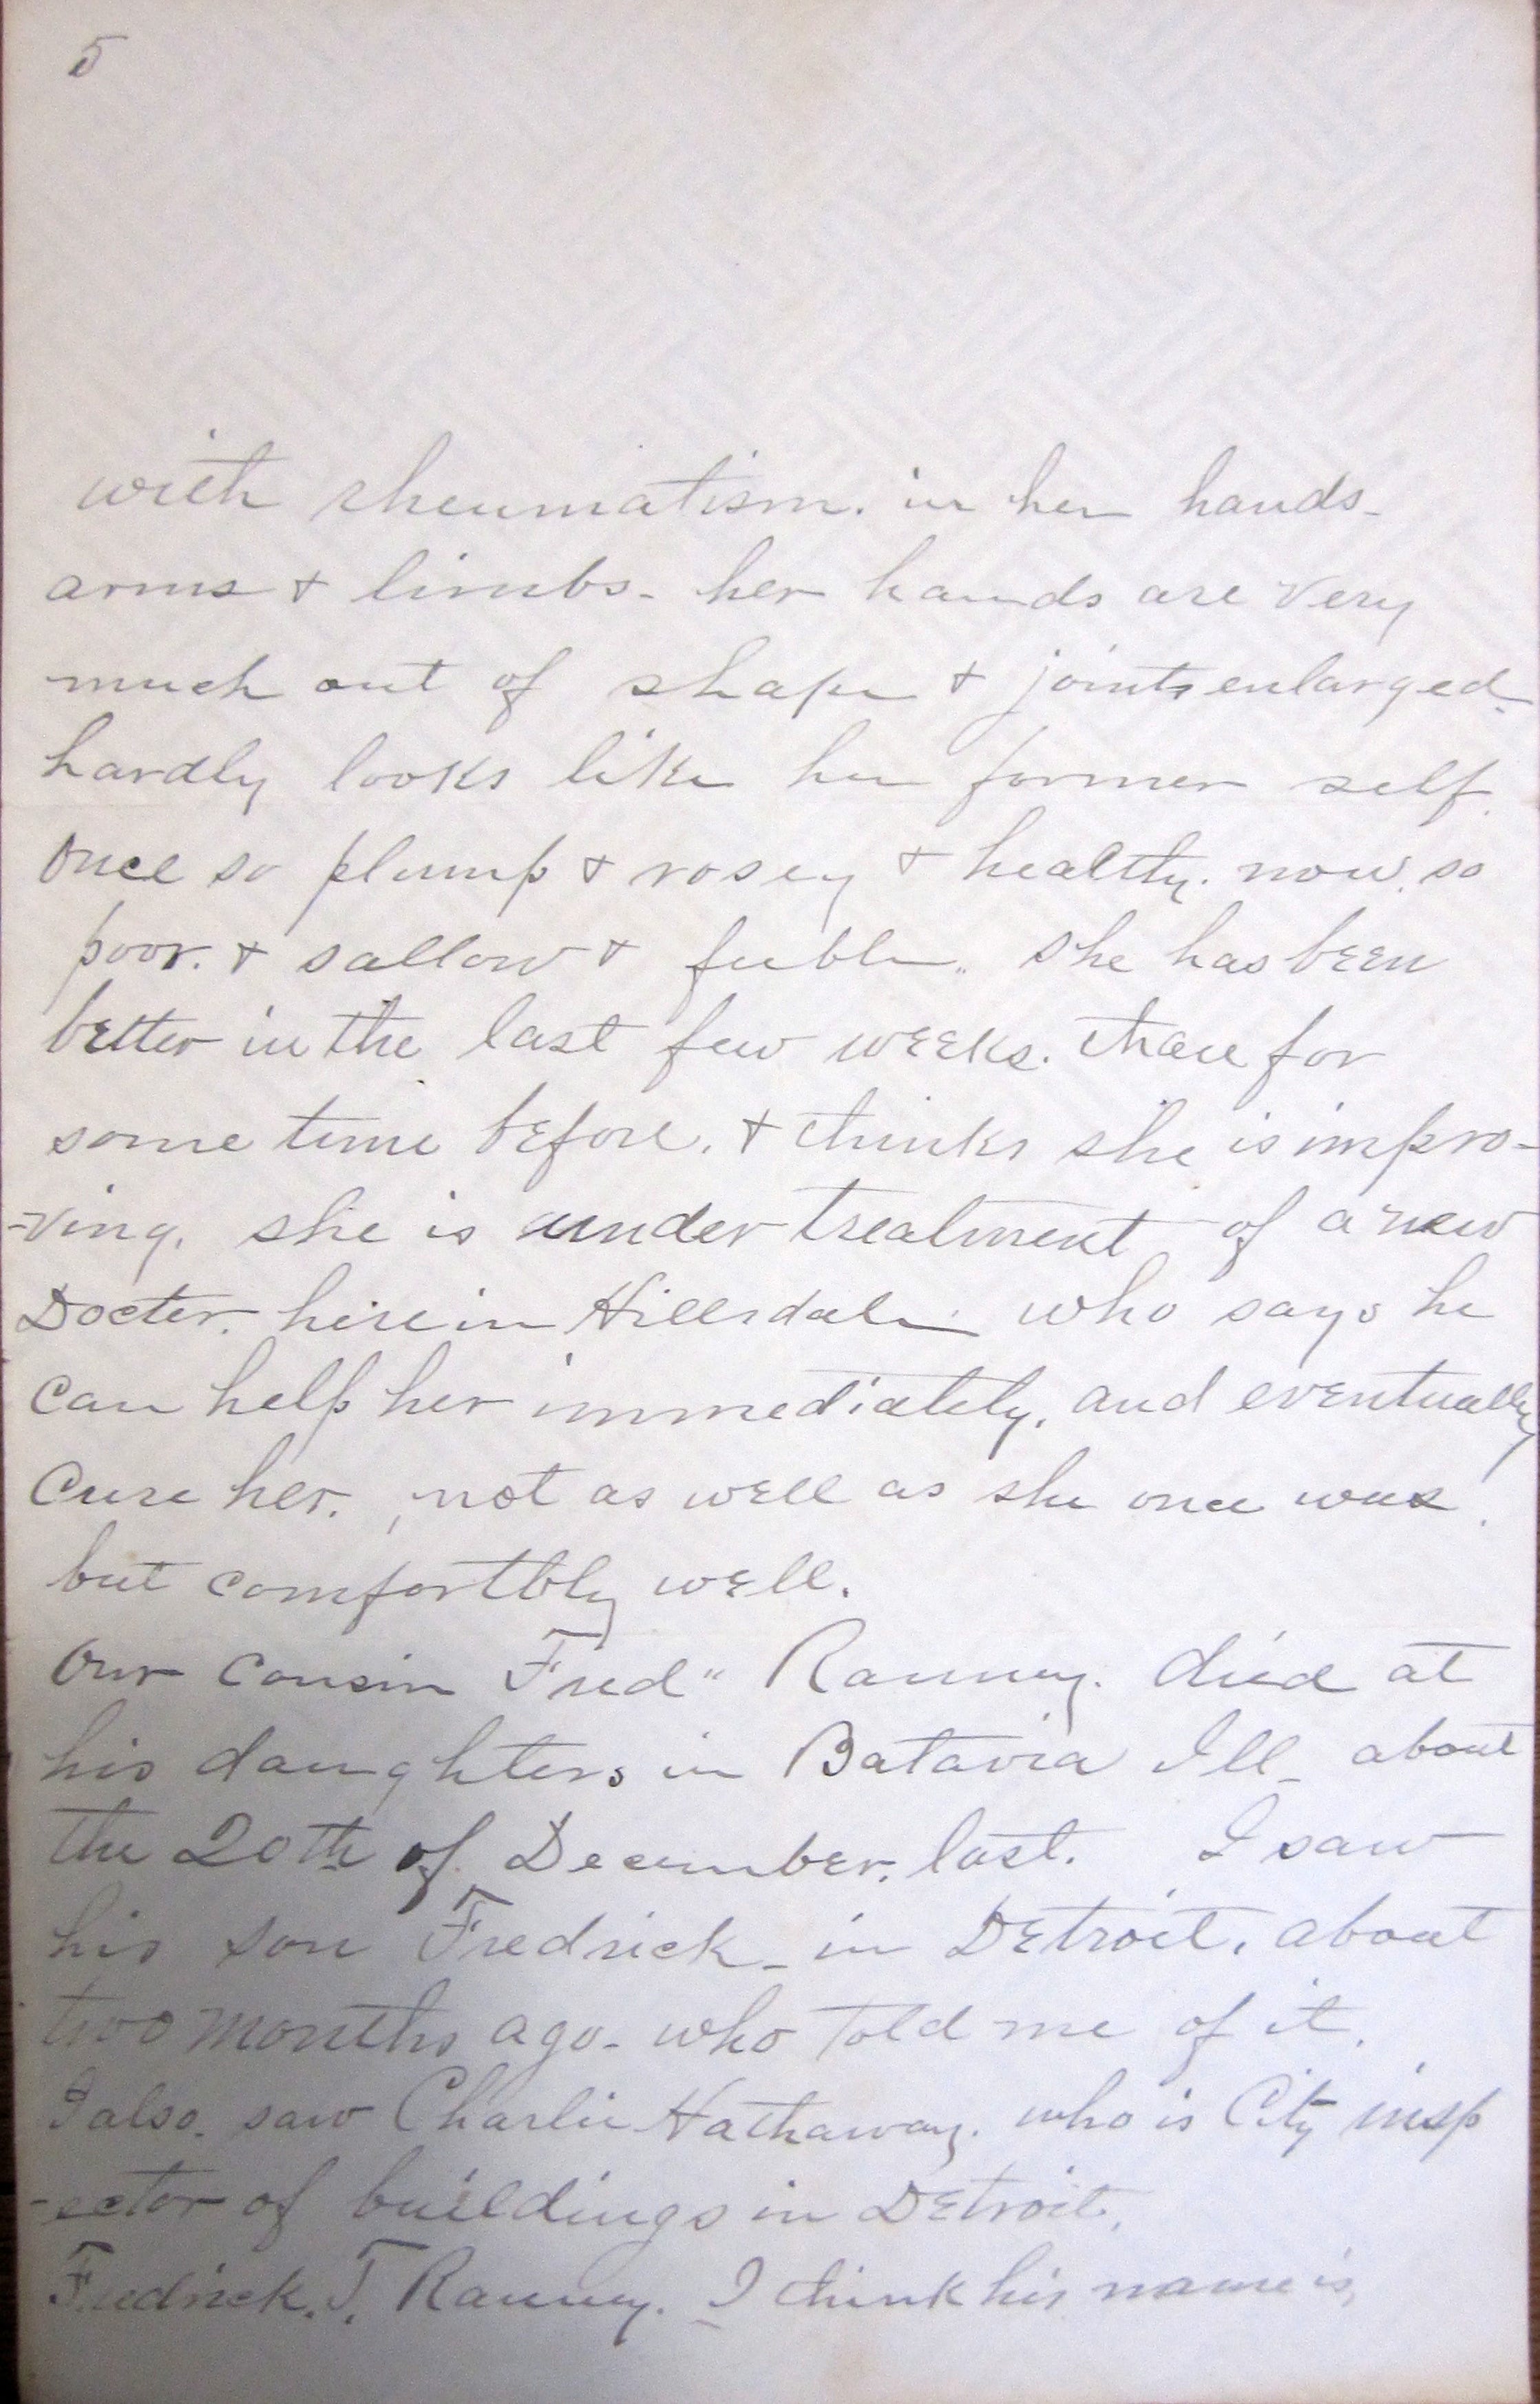 5
with rheumatism. in her hands-
arms + limbs- her hands are very
much out of shape + joints enlarged.
hardly looks like her former self.
Once so plump + rosey + healthy. now. so
poor. + sallow + feeble.. she has been
better in the last few weeks. than for
some time before. + thinks she is impro-
-ving. she is under treatment of a new
Docter. here in Hillsdale. who says he
can help her immediately. and eventually
cure her. , not as well as she once was.
but comfortbly well.
Our Cousin Fred" Ranney. died at
his daughters in Batavia Ill- about
the 20th of December. last. I saw
his son Fredrick- in Detroit. about
two months ago- who told me of it.
I also. saw Charlie Hathaway. who is City insp
-ector of buildings in Detroit.
Fredrick. T. Ranney. I think his name is,